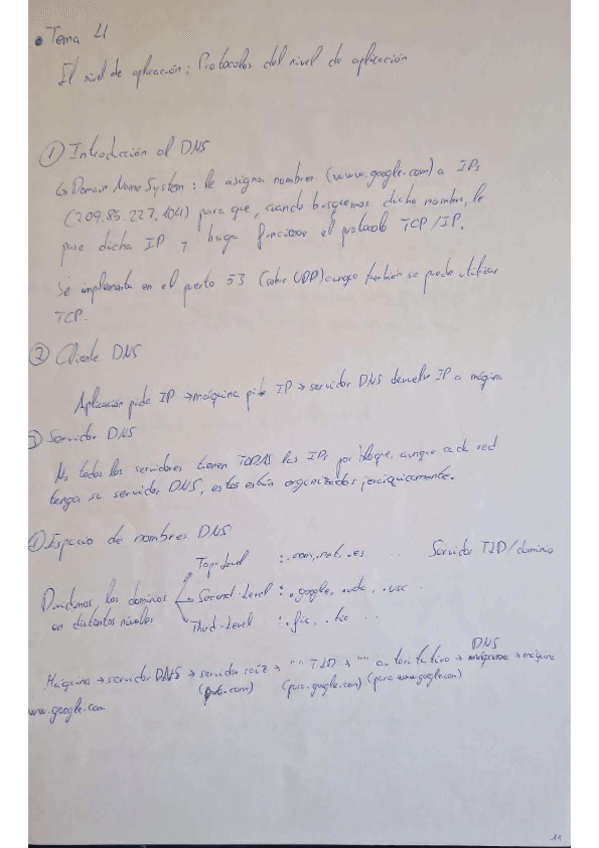 • Tema 4
El nivel de aplicación: Protocolos del nivel de aplicación
① Introducción al DNS
↳ Domain Name System: le asigna nombres (www.google.com) a IPs
(209.85.227.104) para que, cuando busquemos dicho nombre, le
pase dicha IP y haga funcionar el protocolo TCP/IP.
Se implementa en el puerto 53 (sobre UDP) aunque también se puede utilizar
TCP.
② Cliente DNS
Aplicación pide IP → máquina pide IP → servidor DNS devuelve IP a máquina
③ Servidor DNS
No todos los servidores tienen TODAS las IPs por bloque, aunque cada red
tenga su servidor DNS, estos están organizados jerárquicamente.
④ Espacio de nombres DNS
Top-Level : .com, .net, .es ... Servidor TLD/dominio
Dividimos los dominios Second-Level : .google, .udc, .usc ...
en distintos niveles Third-Level : .fic, .tic ...
DNS
Máquina → servidor DNS → servidor raíz → " " TLD → " " autoritativo → → máquina
(para .com) (para .google.com) (para www.google.com)
www.google.com
11